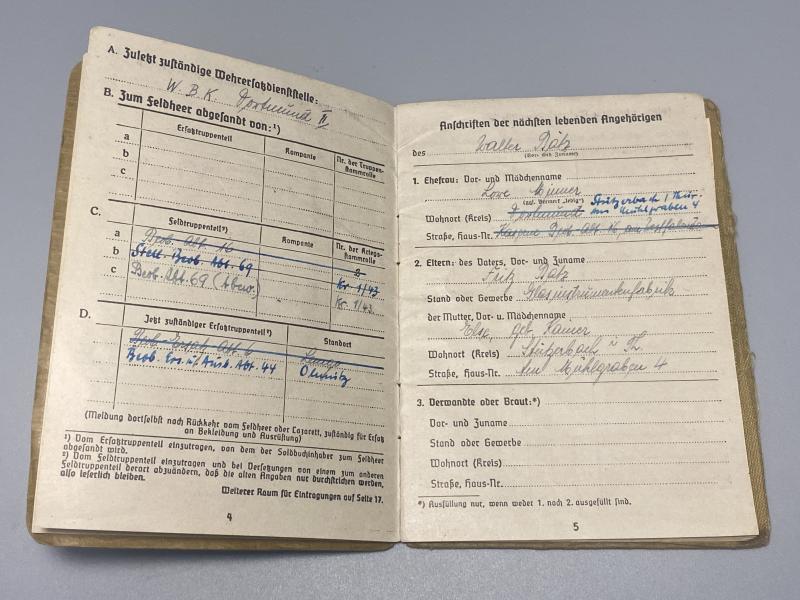 A. Zuletzt zuständige Wehrersatzdienststelle:
W. B. K. Dortmund II
B. Zum Feldheer abgesandt von:¹)
Ersatztruppenteil
Kompanie
Nr. der Truppen-
stammrolle
a
b
c
C.
Feldtruppenteil²)
Kompanie
Nr. der Kriegs-
stammrolle
a Beob. Abt. 16 2
b Stell. Beob. Abt. 69 Kr. 1/43
c Beob. Abt. 69 Kr. 1/43
D.
Jetzt zuständiger Ersatztruppenteil²)
Standort
Beob. Ersatz Abt. 6
Beob. Ers. u. Ausb. Abt. 44 Olmütz
(Meldung dortselbst nach Rückkehr vom Feldheer oder Lazarett, zuständig für Ersatz
an Bekleidung und Ausrüstung)
¹) Vom Ersatztruppenteil einzutragen, von dem der Soldbuchinhaber zum Feldheer
abgesandt wird.
²) Vom Feldtruppenteil einzutragen und bei Versetzungen von einem zum anderen
Feldtruppenteil derart abzuändern, daß die alten Angaben nur durchstrichen werden,
also leserlich bleiben.
Weiterer Raum für Eintragungen auf Seite 17.
4
Anschriften der nächsten lebenden Angehörigen
des Walter Dätz
(Vor- und Zuname)
1. Ehefrau: Vor- und Mädchenname
(ggf. Vermerk „ledig")
Wohnort (Kreis) Dortmund Stützerbach / Thür.
Am Mühlgraben 4
Straße, Haus-Nr.
2. Eltern: des Vaters, Vor- und Zuname
Fritz Dätz
Stand oder Gewerbe Glasinstrumentenfabrik
der Mutter, Vor- u. Mädchenname
Else, geb.
Wohnort (Kreis) Stützerbach i Th
Straße, Haus-Nr. Am Mühlgraben 4
3. Verwandte oder Braut:*)
Vor- und Zuname
Stand oder Gewerbe
Wohnort (Kreis)
Straße, Haus-Nr.
*) Ausfüllung nur, wenn weder 1. noch 2. ausgefüllt sind.
5